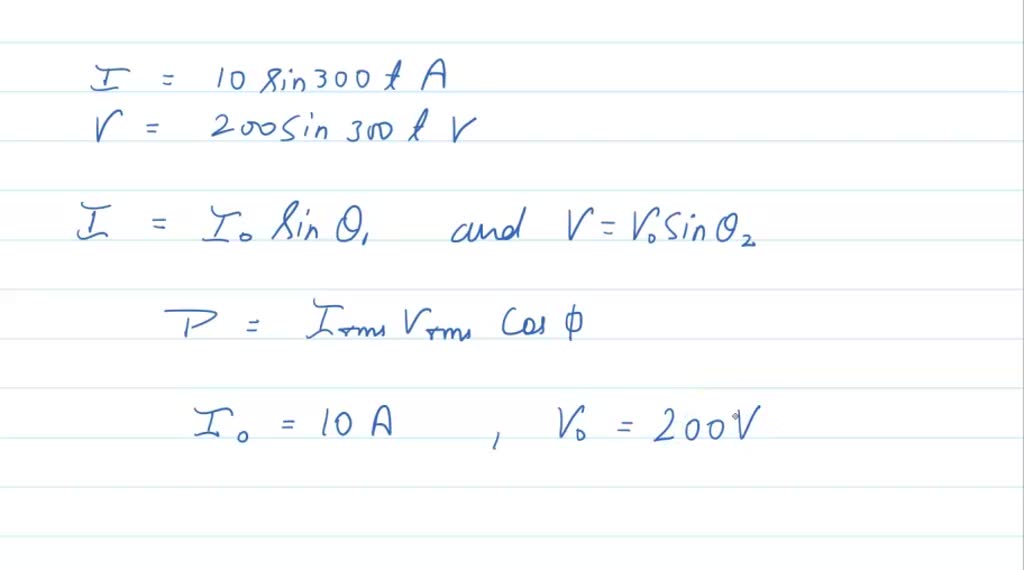 I = 10 sin 300 t A
V = 200 sin 300 t V
I = I₀ sin θ₁ and V = V₀ sin θ₂
P = Irms Vrms cos ϕ
I₀ = 10 A , V₀ = 200V